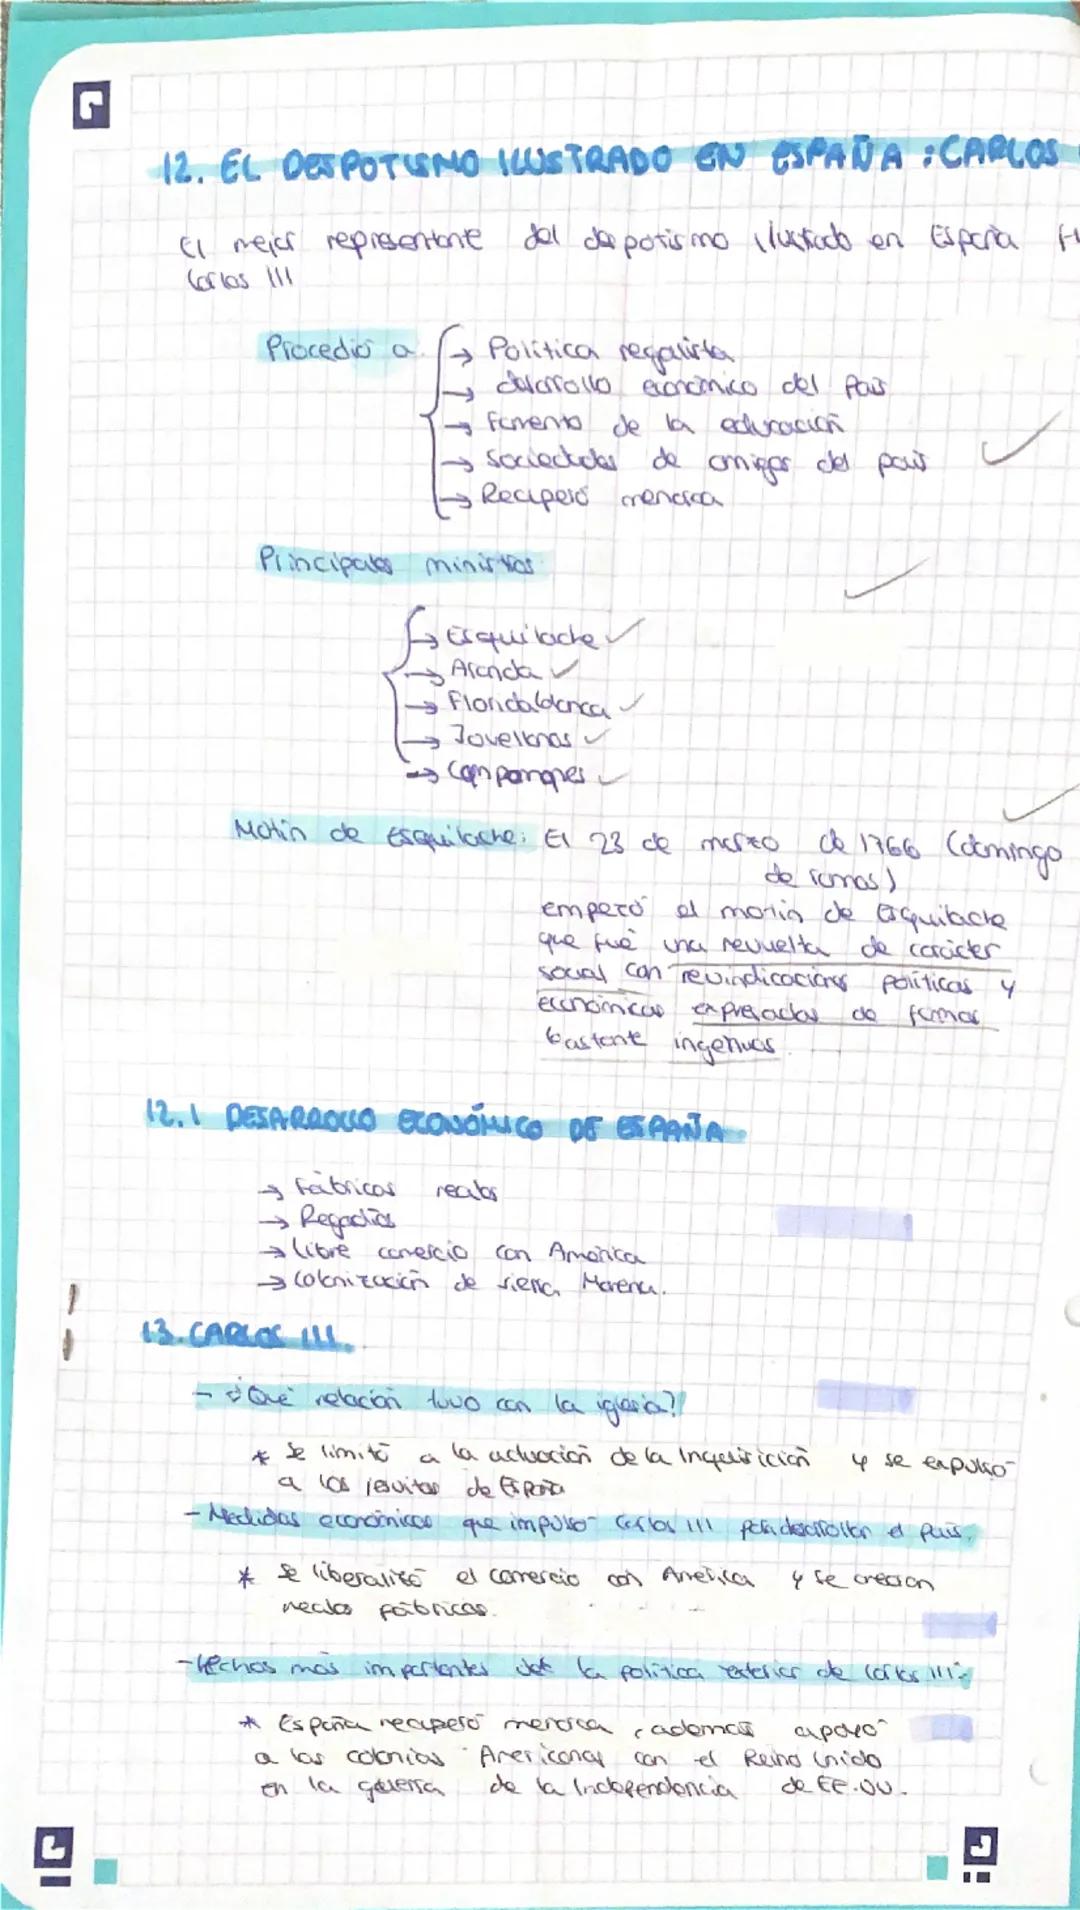 12. EL DESPOTISMO ILUSTRADO EN ESPAÑA : CARLOS
El mejor representante del depotismo ilustrado en España
Carlos III
Procedió a
→ Política regalista
→ desarrollo económico del país
→ Fomento de la educación
→ Sociedades de amigos del país
→ Recuperó menorca
Principales ministros
→ Esquilache
→ Aranda
→ Floridablanca
→ Jovellanos
→ Campomanes
Motín de Esquilache: El 23 de marzo de 1766 (domingo
de ramos)
empezó el motín de Esquilache
que fué una revuelta de carácter
social con revindicaciones políticas y
económicas expresadas de formas
bastante ingenuas.
12.1 DESARROLLO ECONÓMICO DE ESPAÑA
→ Fábricas reales
→ Regadíos
→ libre comercio con América
→ Colonización de sierra Morena.
13. CARLOS III.
- ¿Qué relación tuvo con la iglesia?
* Se limitó a la actuación de la Inquisición y se expulsó
a los jesuitas de España
- Medidas económicas que impulsó Carlos III para desarrollar el país.
* Se liberalizó el comercio con América y se crearon
reales fábricas.
- Hechos más importantes de la política exterior de Carlos III:
* España recuperó menorca, además apoyó
a las colonias Americanas con el Reino Unido
en la guerra de la Independencia de EE.UU.